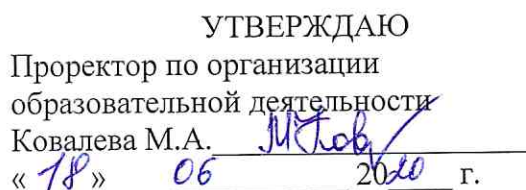 УТВЕРЖДАЮ
Проректор по организации
образовательной деятельности
Ковалева М.А.
« 18 » 06 2020 г.